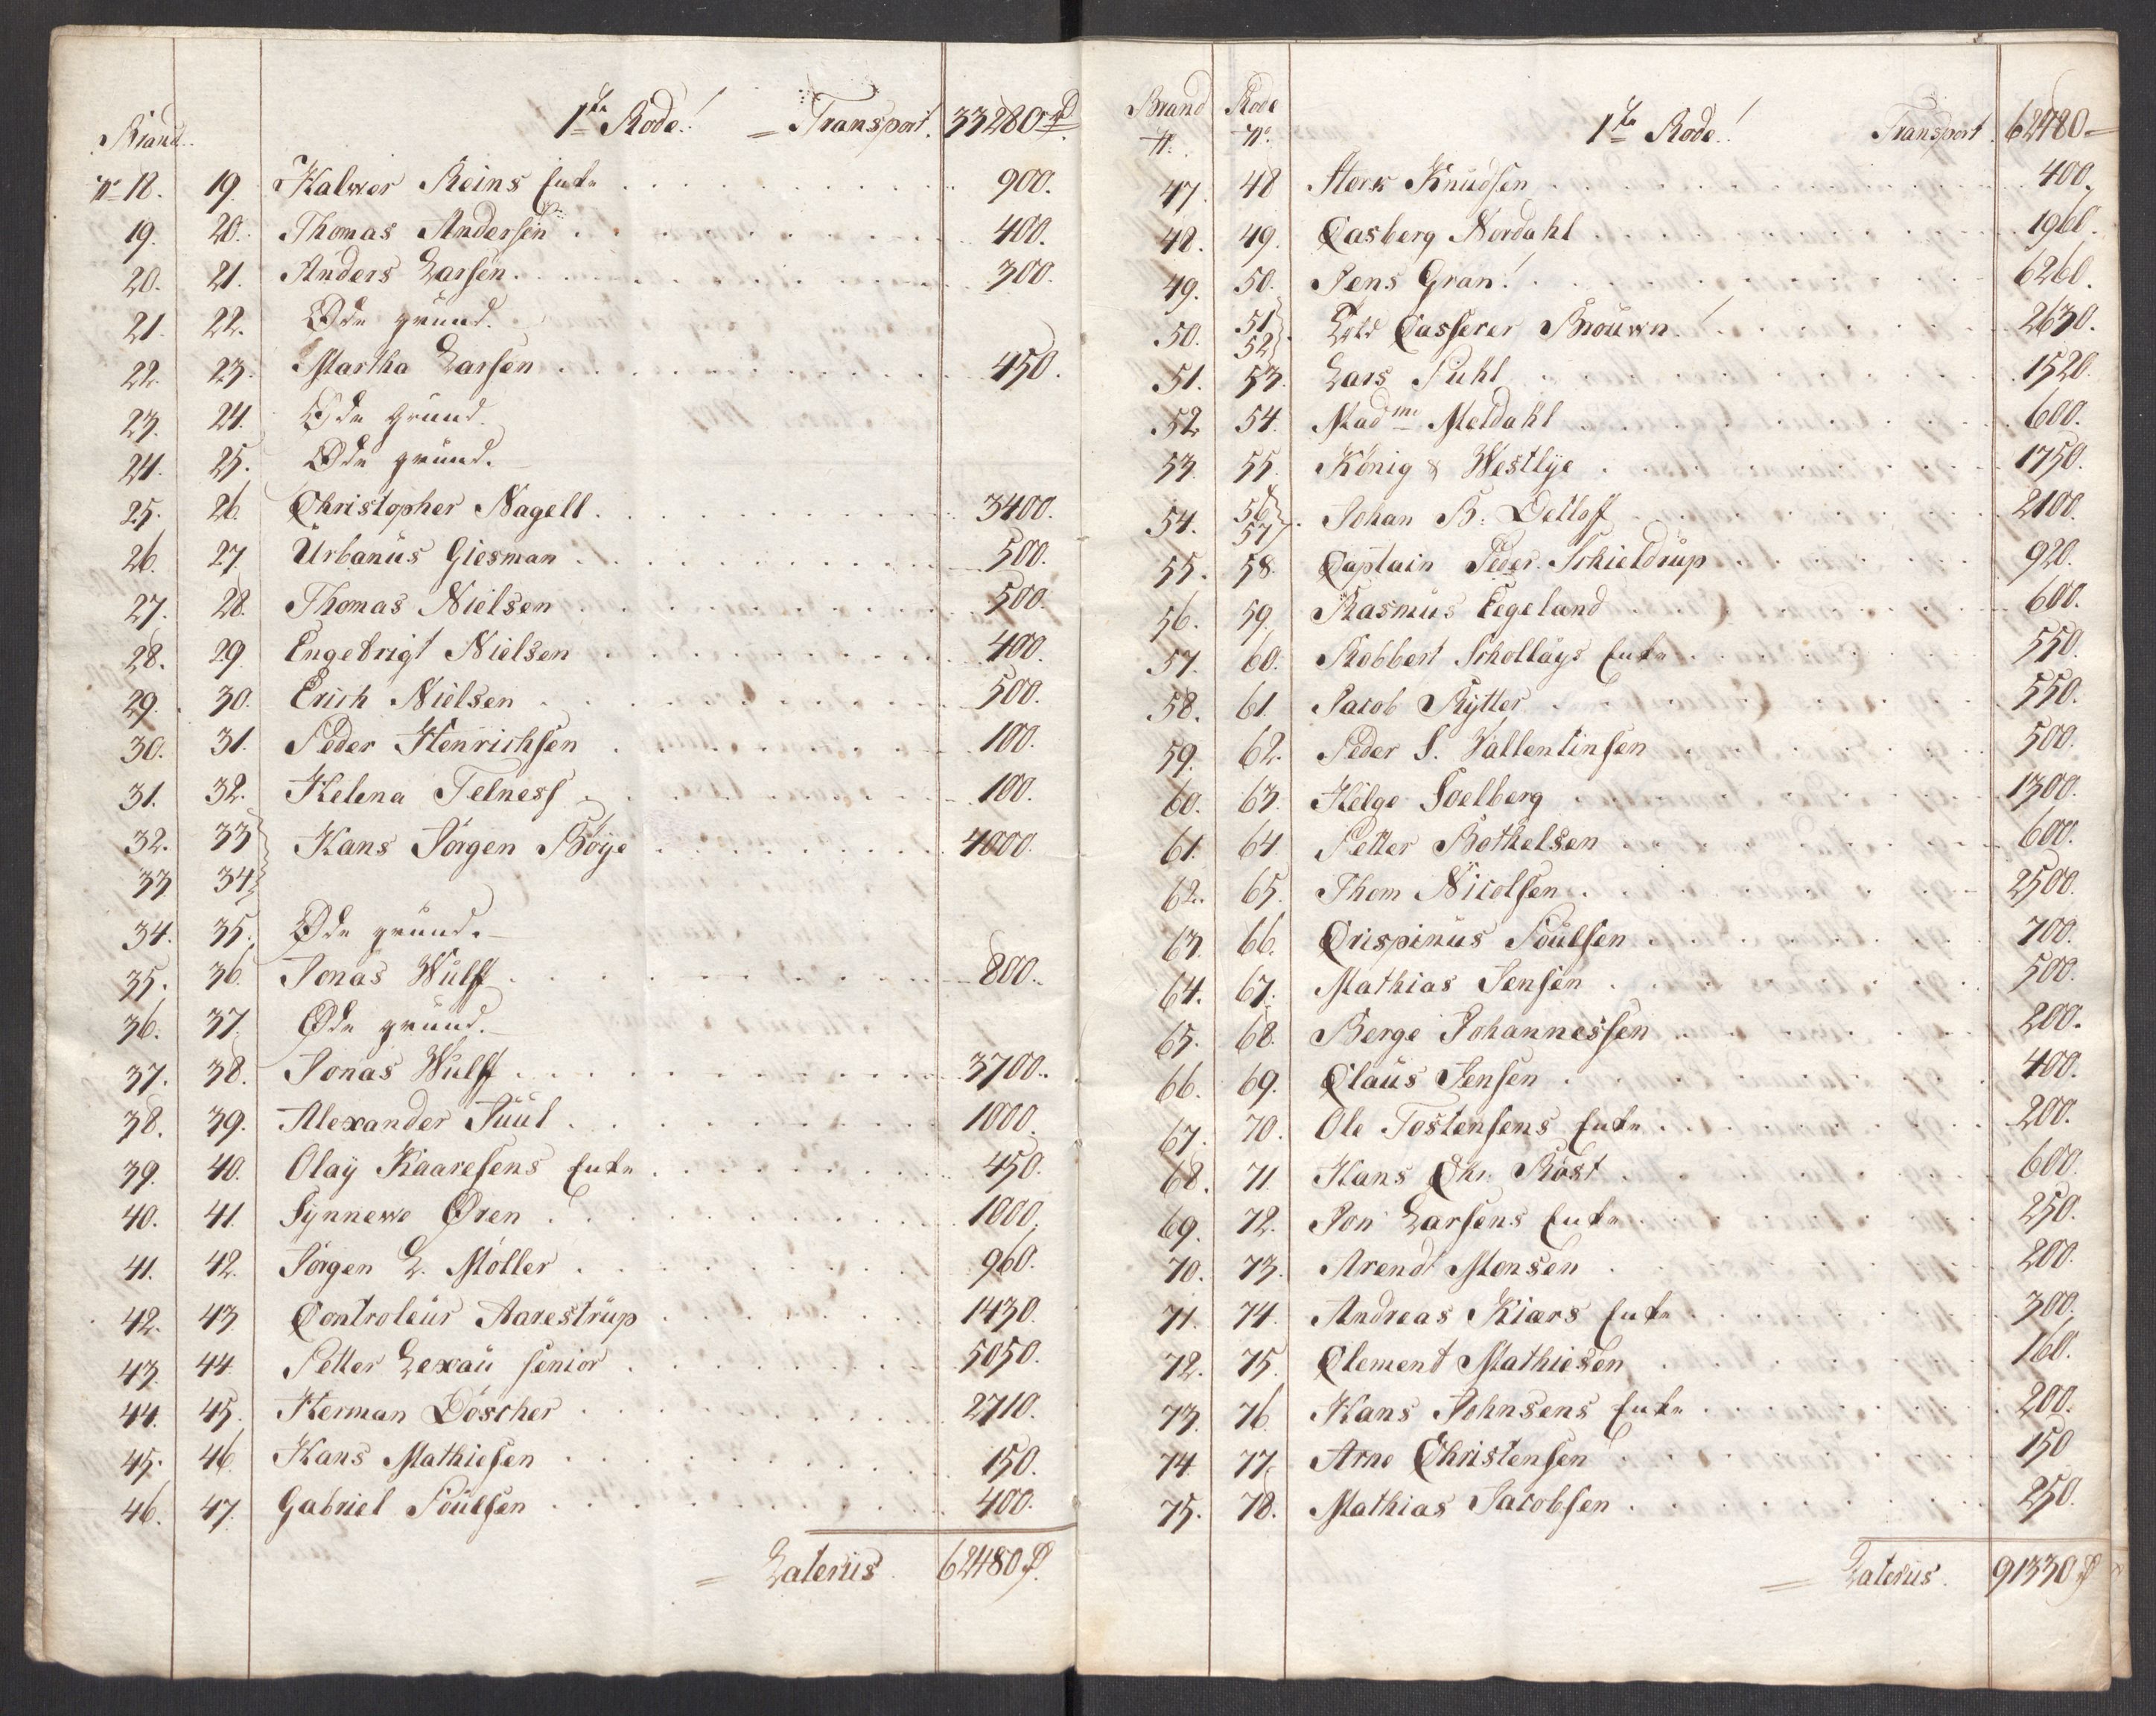 1te Rode! = Transport. 33280 rd
Brand
No 18. 19. Halvor Reins Enke 900.
19. 20. Thomas Andersen 400.
20. 21. Anders Larsen 300.
21 22. Øde grund.
22. 23. Martha Larsen 450.
23. 24. Øde grund.
24. 25. Øde grund.
25. 26. Christopher Nagell 3400.
26. 27. Urbanus Giesman 500.
27. 28. Thomas Nielsen 500.
28. 29. Engebrigt Nielsen 400.
29. 30. Erich Nielsen 500.
30. 31. Peder Henrichsen 100.
31. 32. Helena Telness 100.
32. 33 Hans Jörgen Böye 4000.
33 34
34. 35. Øde grund.
35. 36. Jonas Wulff 800.
36. 37. Øde grund.
37. 38. Jonas Wulff 3700.
38. 39. Alexander Juul 1000.
39. 40. Olay Kaaresens Enke 450.
40. 41. Synnewe Øren 1000.
41. 42. Jörgen L. Möller 960.
42. 43 Controleur Aarestrup 1430.
43. 44. Petter Lexau senior 5050.
44. 45. Herman Döscher 2710.
45. 46. Hans Mathiesen 150.
46. 47. Gabriel Poulsen 400.
= Laterus 62480 rd
Brand Rode
N. No. 1te Rode! Transport 62480
47. 48 Sterk Knudsen 400.
48. 49. Casberg Nordahl 1960.
49. 50. Jens Gran! 6260.
50. 51 52 Casserer Brouwn! 2630.
51. 53. Lars Puhl 1520.
52. 54. Madme Meldahl 600.
53. 55. König & Westlye 1750.
54. 56 57 Johan B: Detloff 2100.
55. 58. Captain Peder Schieldrup 920.
56. 59. Rasmus Eegeland 600.
57. 60. Robbert Schollays Enke 550.
58. 61. Jacob Rytter 550.
59. 62. Peder S. Vallentinsen 500.
60. 63. Helge Soelberg 1300.
61. 64. Petter Bothelsen 600.
62. 65. Thom Nicolsen 2500.
63. 66. Crispinus Poulsen 700.
64. 67. Mathias Jensen 500.
65. 68. Berge Johannessen 200.
66. 69. Claus Jensen 400.
67. 70. Ole Tostensens Enke 200.
68. 71. Hans Chr. Röst 600.
69. 72. Jon Larsens Enke 250.
70. 73. Arendt Monsen 200.
71. 74. Andreas Kiars Enke 300.
72. 75. Clement Mathiesen 160.
73. 76. Hans Johnsens Enke 200.
74. 77. Arne Christensen 150
75. 78. Mathias Jacobsen 250.
= Laterus. 91330 rd